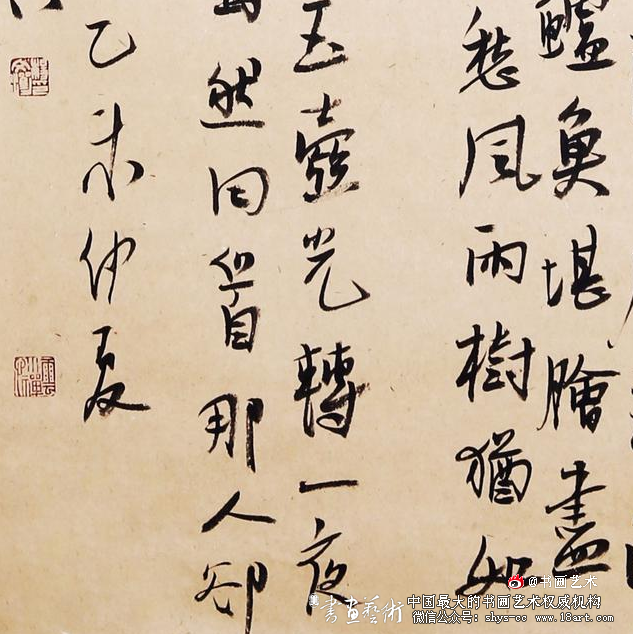 鱸魚堪膾盡
愁風雨樹猶如
玉壺光轉一夜
驀然回首那人卻
乙未仲夏
書畫藝術
@书画艺术
中国最大的书画艺术权威机构
微信公众号：shys-cc www.18art.com